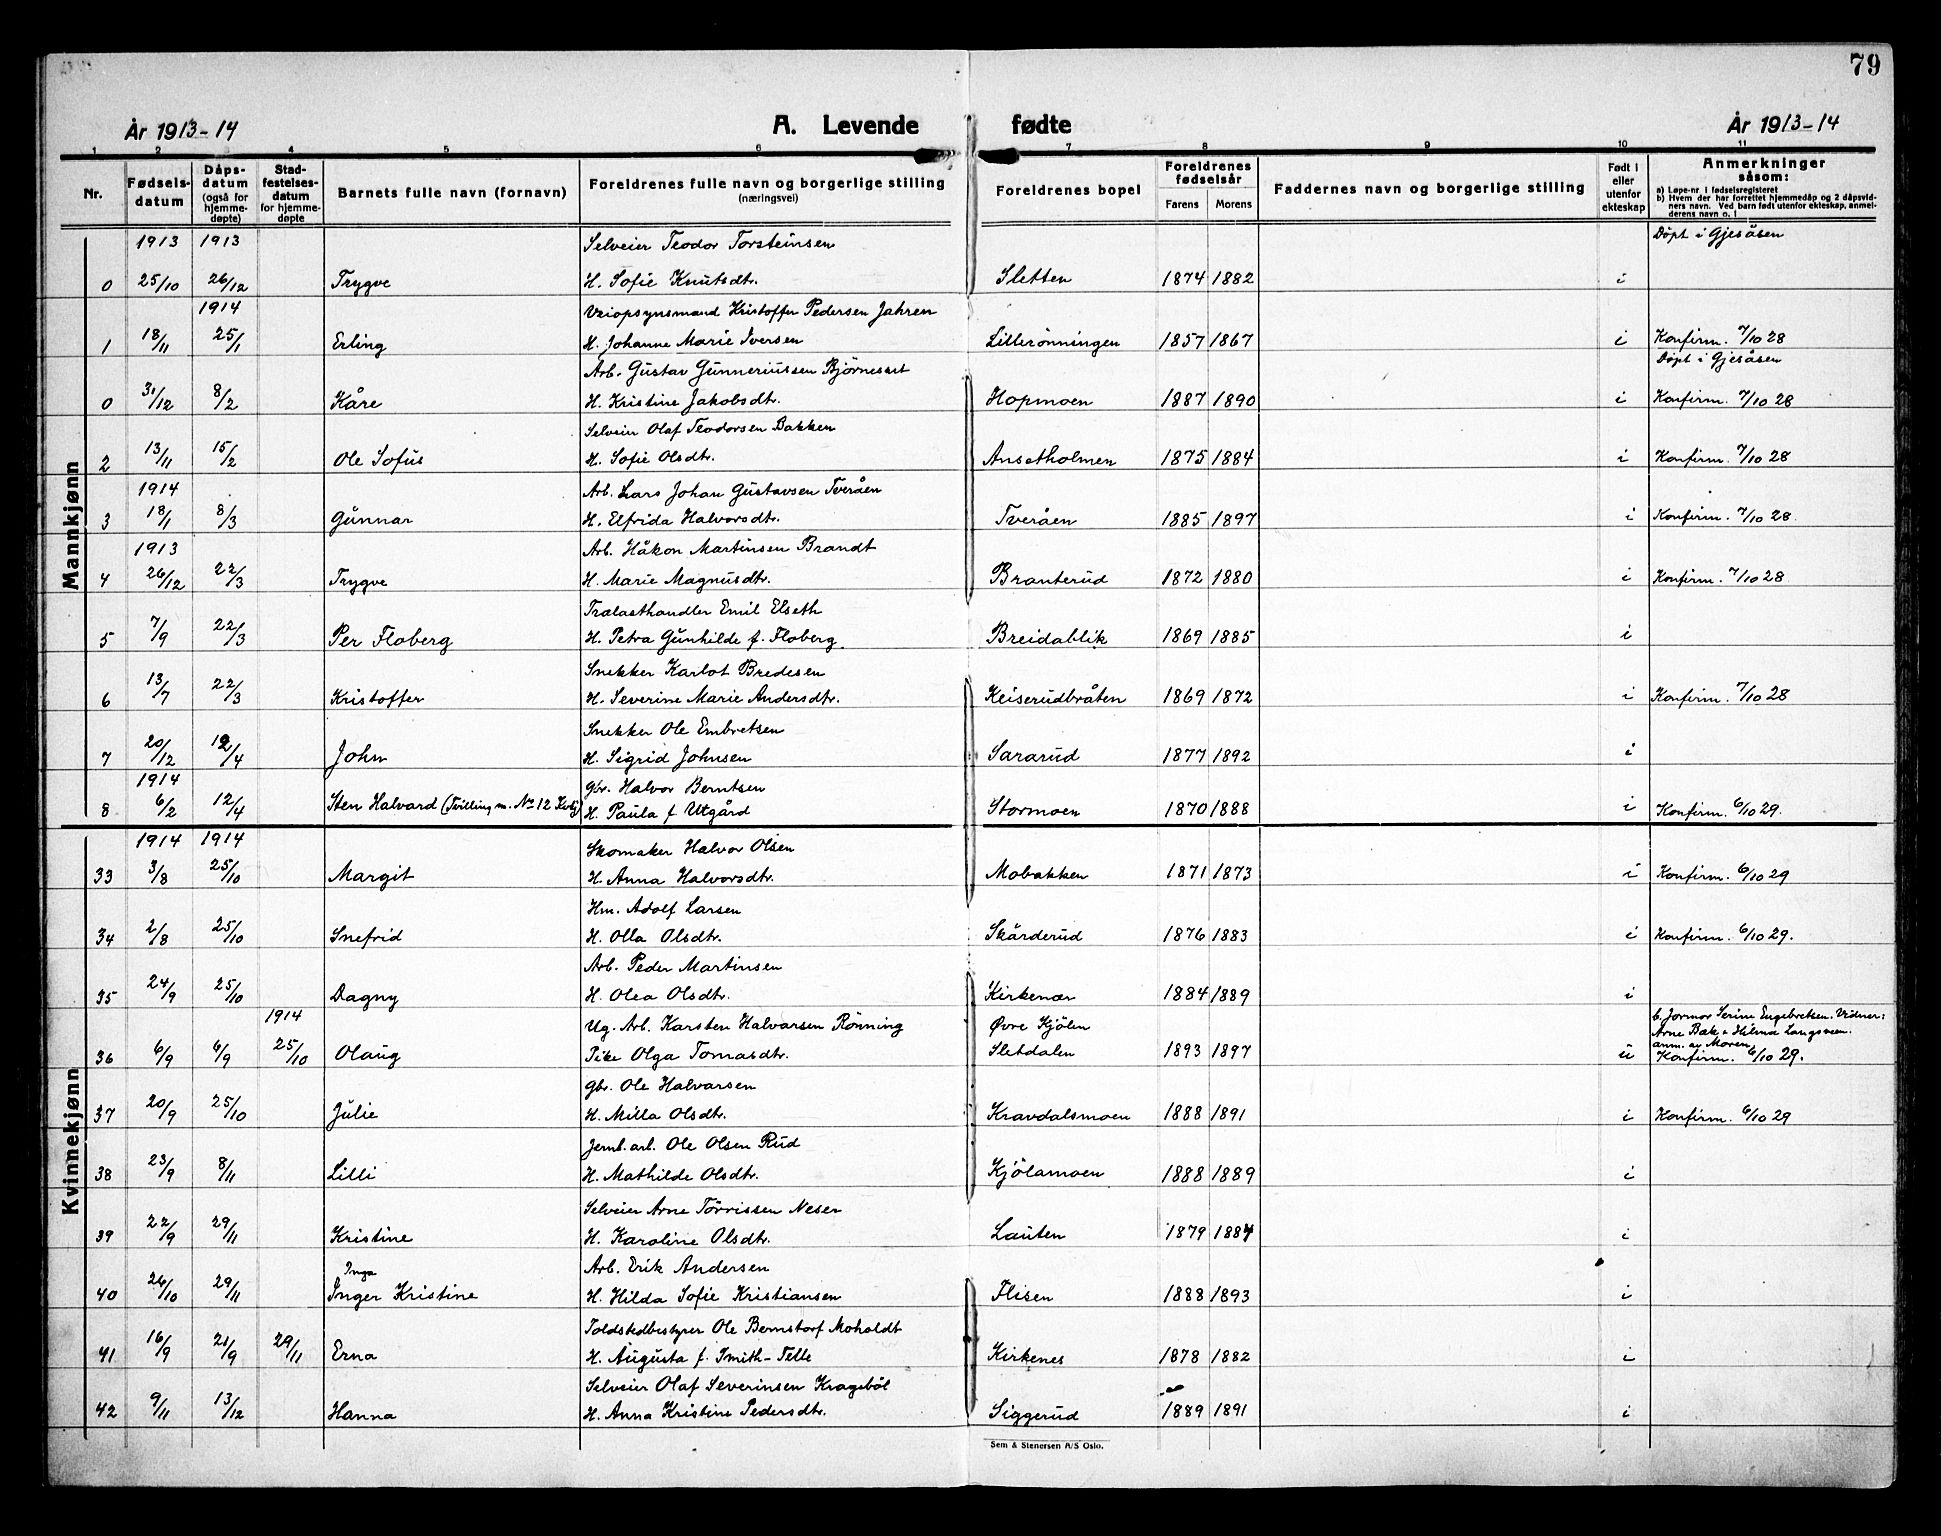 79
År 1913-14 A. Levende fødte År 1913-14
1 2 3 4 5 6 7 8 9 10 11
Nr. Fødsels-datum Dåps-datum (også for hjemme-døpte) Stad-festelses-datum for hjemme-døpte Barnets fulle navn (fornavn) Foreldrenes fulle navn og borgerlige stilling (næringsvei) Foreldrenes bopel Foreldrenes fødselsår Farens Morens Faddernes navn og borgerlige stilling Født i eller utenfor ekteskap Anmerkninger såsom:
a) Løpe-nr. i fødselsregisteret
b) Hvem der har forrettet hjemmedåp og 2 dåpsvid-
ners navn. Ved barn født utenfor ekteskap, anmel-
derens navn o. l
Mannkjønn
1913 1913 Selveier Teodor Torsteinsen Döpt i Gjesåsen
0 25/10 26/12 Trygve H. Sofie Knutsdtr. Sletten 1874 1882 i
1914 Veiopsynsmand Kristoffer Pedersen Jahren
1 18/11 25/1 Erling H. Johanne Marie Iversen Lillerönningen 1857 1867 i Konfirm. 7/10 28
Arb. Gustav Gunneriussen Björneset Döpt i Gjesåsen
0 31/12 8/2 Kåre H. Kristine Jakobsdtr. Hopmoen 1887 1890 i Konfirm. 7/10 28
Selveier Olaf Teodorsen Bakken
2 13/11 15/2 Ole Sofus H. Sofie Olsdtr. Ansetholmen 1875 1884 i Konfirm. 7/10 28
1914 Arb. Lars Johan Gustavsen Tveråen
3 18/1 8/3 Gunnar H. Elfrida Halvorsdtr. Tveråen 1885 1897 i Konfirm. 7/10 28.
1913 Arb. Håkon Martinsen Brandt
4 26/12 22/3 Trygve H. Marie Magnusdtr. Branterud 1872 1880 i Konfirm. 7/10 28
Trælasthandler Emil Elseth
5 7/9 22/3 Per Floberg H. Petra Gunhilde f. Floberg. Breidablik 1869 1885 i
Snekker Karlot Bredesen
6 13/7 22/3 Kristoffer H. Severine Marie Andersdtr. Keiserudbråten 1869 1872 i Konfirm. 7/10 28
Snekker Ole Embretsen
7 20/12 12/4 John H. Sigrid Johnsen Sararud 1877 1892 i
1914 gbr. Halvor Berntsen
8 6/2 12/4 Sten Halvard (Tvilling m. No 12 Kvkj) H. Paula f. Utgård Stormoen 1870 1888 i Konfirm. 6/10 29.
Kvinnekjønn
1914 1914 Skomaker Halvor Olsen
33 3/8 25/10 Margit H. Anna Halvorsdtr. Mobakken 1871 1873 i Konfirm. 6/10 29
Hm. Adolf Larsen
34 2/8 25/10 Snefrid H. Olla Olsdtr. Skårderud 1876 1883 i Konfirm. 6/10 29.
Arb. Peder Martinsen
35 24/9 25/10 Dagny H. Olea Olsdtr. Kirkenær 1884 1889 i
1914 Ug. Arb. Karsten Halvarsen Rönning Övre Kjölen b. Jormor Serine Engebretsen. Vidner:
Arne Bæk & Hilma Langsveen.
anm. av Moren,
36 6/9 6/9 25/10 Olaug Pike Olga Tomasdtr. Sletdalen 1893 1897 u Konfirm. 6/10 29.
gbr. Ole Halvarsen
37 20/9 25/10 Julie H. Milla Olsdtr. Kravdalsmoen 1888 1891 i Konfirm. 6/10 29
Jernb. arb. Ole Olsen Rud
38 23/9 8/11 Lilli H. Mathilde Olsdtr. Kjölamoen 1888 1889 i
Selveier Arne Törrissen Neser
39 22/9 29/11 Kristine H. Karoline Olsdtr. Lauten 1879 1887 i
Inga Arb. Erik Andersen
40 26/10 29/11 Inger Kristine H. Hilda Sofie Kristiansen Flisen 1888 1893 i
Toldstedbestyrer Ole Bernstorf Moholdt
41 16/9 21/9 29/11 Erna H. Augusta f. Smith-Telle Kirkenes 1878 1882 i
Selveier Olaf Severinsen Kragsböl
42 9/11 13/12 Hanna H. Anna Kristine Pedersdtr. Siggerud 1889 1891 i
Sem & Stenersen A/S Oslo.